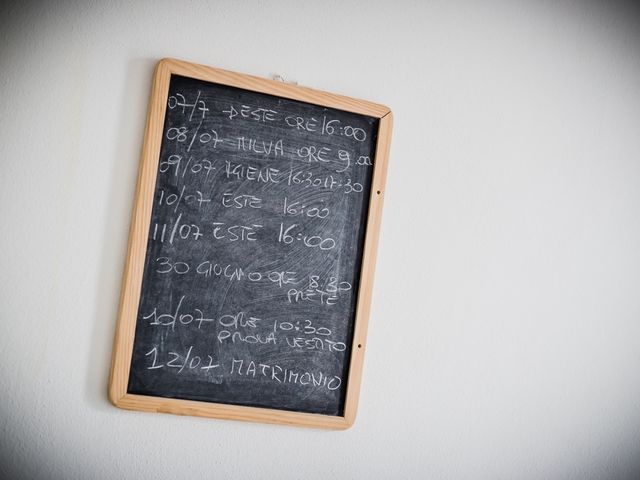 07/7 → ESTE ORE 16:00
08/07 MILVA ORE 9.00
09/07 IGIENE 16:30 17:30
10/07 ESTE 16:00
11/07 ESTE 16:00
30 GIUGNO ORE 8:30
PRETE
10/07 ORE 10:30
PROVA VESTITO
12/07 MATRIMONIO